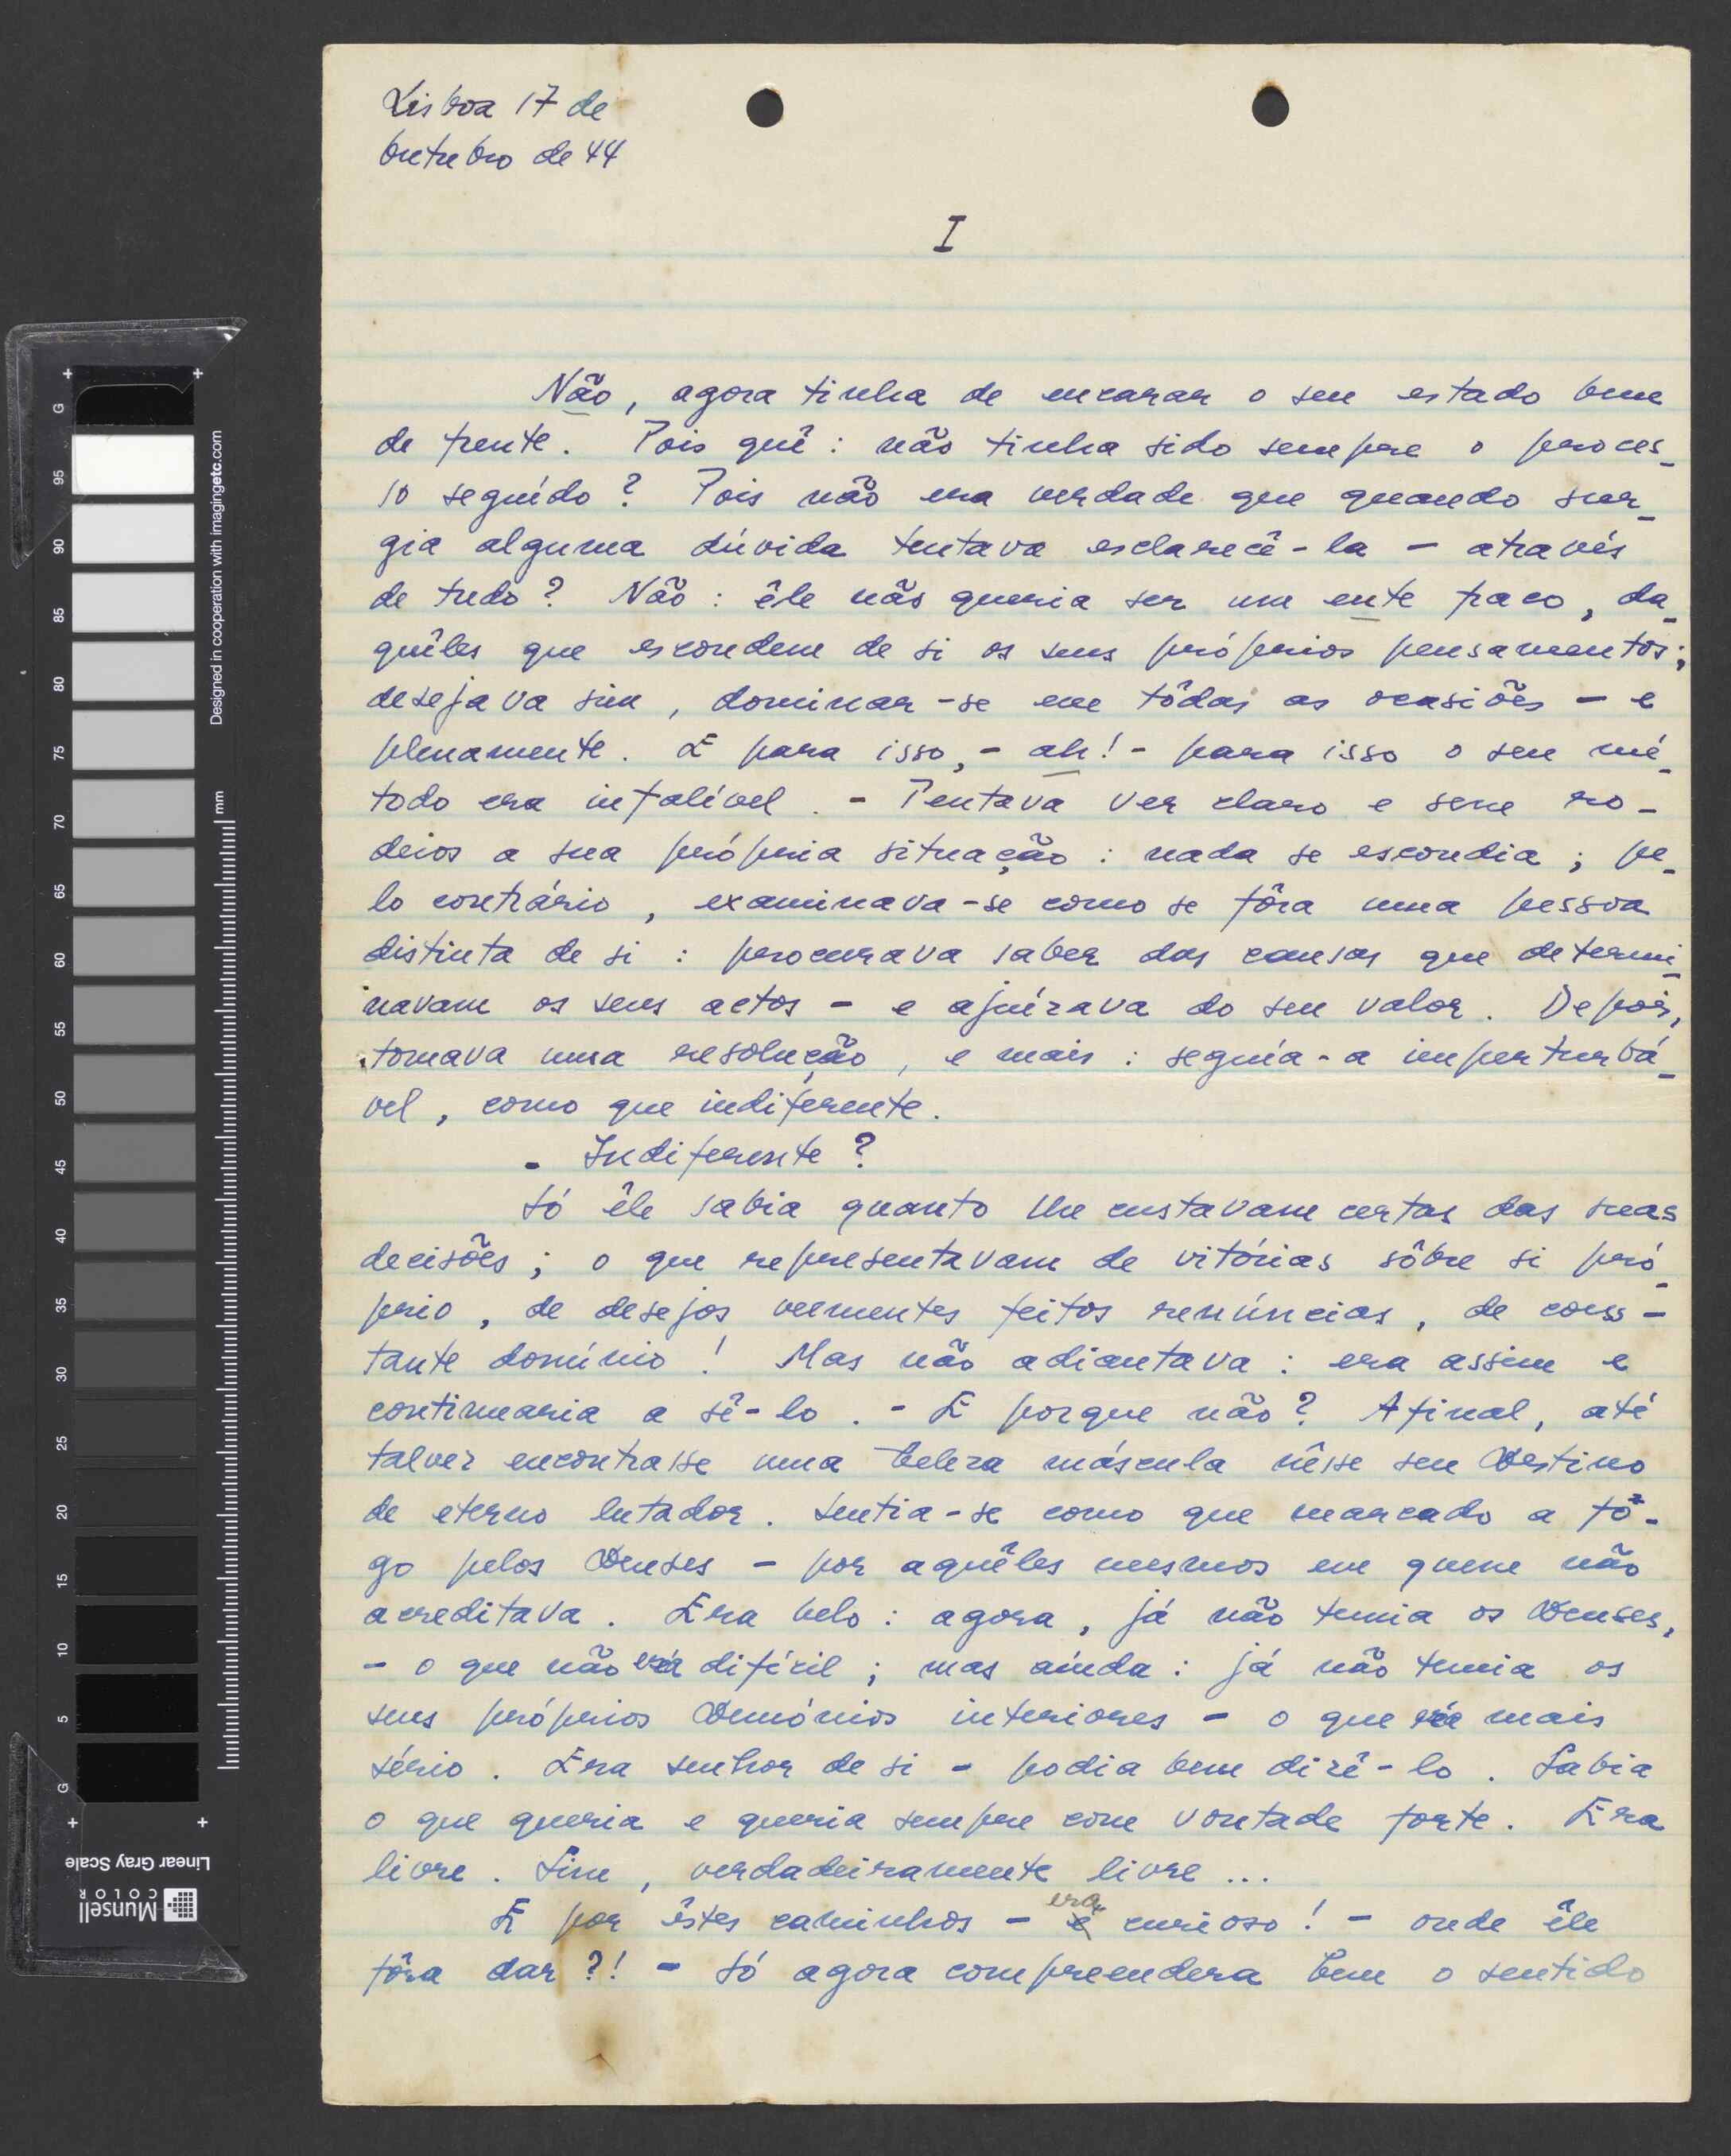 Lisboa 17 de
Outubro de 44
I
Não, agora tinha de encarar o seu estado bem
de frente. Pois quê: não tinha sido sempre o proces-
so seguído? Pois não era verdade que quando sur-
gia alguma dúvida tentava esclarecê-la - através
de tudo? Não: êle não queria ser um ente fraco, da-
quêles que escondem de si os seus próprios pensamentos;
desejava sim, dominar-se em tôdas as ocasiões - e
plenamente. E para isso, - ah! - para isso o seu mé-
todo era infalível. - Tentava ver claro e sem ro-
deios a sua própria situação: nada se escondia; pe-
lo contrário, examinava-se como se fôra uma pessoa
distinta de si: procurava saber das causas que determi-
navam os seus actos - e ajuízava do seu valor. Depois,
tomava uma resolução, e mais: seguía-a imperturbá-
vel, como que indiferente.
- Indiferente?
Só êle sabia quanto lhe custavam certas das suas
decisões; o que representavam de vitórias sôbre si pró-
prio, de desejos veementes feitos renúncias, de cons-
tante domínio! Mas não adiantava: era assim e
continuaria a sê-lo. - E porque não? Afinal, até
talvez encontrasse uma beleza máscula nêsse seu Destino
de eterno lutador. Sentia-se como que marcado a fô-
go pelos Deuses - por aquêles mesmos em quem não
acreditava. Era belo: agora, já não temia os Deuses,
- o que não era difícil; mas aínda: já não temia os
seus próprios Demónios interiores - o que era mais
sério. Era senhor de si - podia bem dizê-lo. Sabia
o que queria e queria sempre com vontade forte. Era
livre. Sim, verdadeiramente livre...
E por êstes caminhos - era curioso! - onde êle
fôra dar?! - Só agora compreendera bem o sentido
Munsell
COLOR
Linear Gray Scale
Designed in cooperation with imagingetc.com
mm
G
95
90
85
80
75
70
65
60
55
50
45
40
35
30
25
20
15
10
5
G